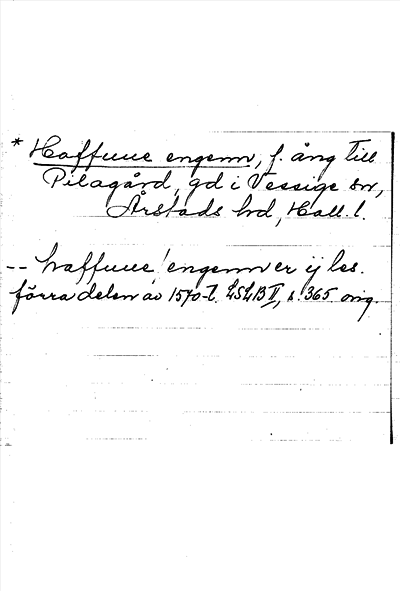 * Haffuue engenn, f. äng till
Pilagård, gd i Vessige sn,
Årstads hd, Hall. l.
-- haffuue! engenn er ij les.
förra delen av 1570-t. LSLB II, s. 365 orig.